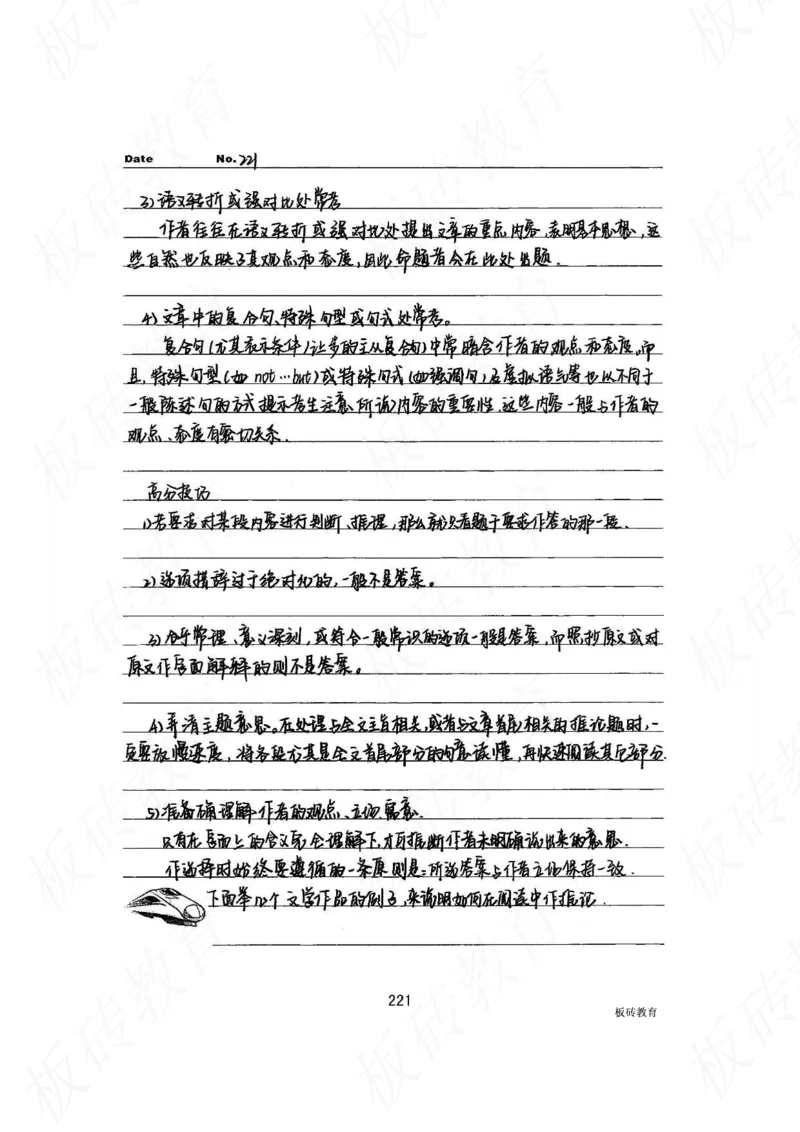 Date No. 221
3) 语义转折或强对比处常考
作者往往在语义转折或强对比处提出文章的重点内容、表明基本思想，这
些自然也反映了其观点和态度，因此命题者会在此处出题．
4) 文章中的复合句、特殊句型或句式处常考。
复合句(尤其表示条件、让步的主从复合句)中常暗含作者的观点和态度。而
且，特殊句型(如 not…but)或特殊句式(如强调句)及虚拟语气等也从不同于
一般陈述句的方式提示考生注意所谈内容的重要性，这些内容一般与作者的
观点、态度有密切关系．
高分技巧
1) 若要求对某段内容进行判断、推理，那么就只看题干要求作答的那一段．
2) 选项措辞过于绝对化的，一般不是答案。
3) 合乎常理、意义深刻，或符合一般常识的选项一般是答案，而照抄原文或对
原文作字面解释的则不是答案。
4) 弄清主题意思。在处理与全文主旨相关，或者与文章首尾相关的推论题时，一
定要放慢速度，将各段尤其是全文首尾部分的句意读懂，再快速阅读其它部分．
5) 准备确理解作者的观点、立场、寓意．
只有在字面上的含义完全理解下，才可推断作者未明确说出来的意思．
作选择时始终要遵循的一条原则是：所选答案与作者立场保持一致．
下面举几个文学作品的例子，来说明如何在阅读中作推论．
221
板砖教育